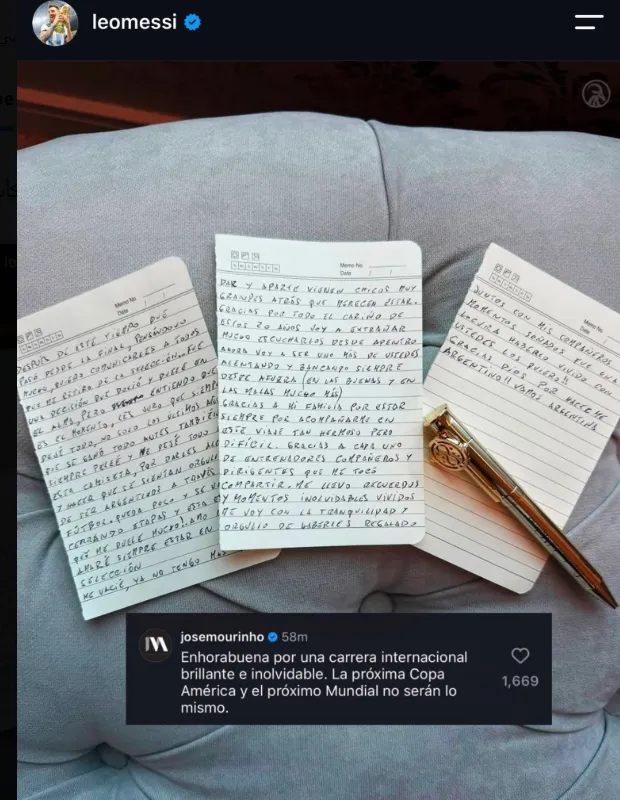 leomessi
Memo No.
Date / /
DESPUÉS DE ESTE TIEMPO QUE
PASO DESDE LA FINAL, PENSANDOLO
MUCHO, QUIERO COMUNICARLES A TODOS
QUE ME RETIRO DE LA SELECCIÓN. FUE
UNA DECISIÓN QUE DOLIÓ Y DUELE EN
EL ALMA, PERO ENTIENDO QUE
ES EL MOMENTO. LES JURO QUE SIEMPRE
DEJÉ TODO, NO SOLO LOS ULTIMOS AÑOS
QUE SE GANÓ TODO ANTES TAMBIÉN
SIEMPRE PELEÉ Y ME DEJÉ TODO
ESTA CAMISETA, POR DARLES ALE
Y HACER QUE SE SIENTAN ORGULLO
DE SER ARGENTINOS A TRAVÉS
FÚTBOL. QUEDA POCO Y SE V
CERRANDO ETAPAS Y ESTA E
QUE ME DUELE MUCHO. AMO
AMARÉ SIEMPRE ESTAR EN
SELECCIÓN
ME VACIÉ, YA NO TENGO MAS
Memo No.
Date / /
DAR Y APARTE VIENEN CHICOS MUY
GRANDES ATRÁS QUE MERECEN ESTAR.
GRACIAS POR TODO EL CARIÑO DE
ESTOS 20 AÑOS VOY A EXTRAÑAR
MUCHO ESCUCHARLOS DESDE ADENTRO
AHORA VOY A SER UNO MÁS DE USTEDES
ALENTANDO Y BANCANDO SIEMPRE
DESDE AFUERA (EN LAS BUENAS Y EN
LAS MALAS MUCHO MÁS)
GRACIAS A MI FAMILIA POR ESTAR
SIEMPRE POR ACOMPAÑARME EN
ESTE VIAJE TAN HERMOSO PERO
DIFÍCIL. GRACIAS A CADA UNO
DE ENTRENADORES COMPAÑEROS Y
DIRIGENTES QUE ME TOCÓ
COMPARTIR. ME LLEVO RECUERDOS
Y MOMENTOS INOLVIDABLES VIVIDOS
ME VOY CON LA TRANQUILIDAD Y
ORGULLO DE HABERLES REGALADO
Memo No.
Date / /
JUNTOS CON MIS COMPAÑEROS
MOMENTOS SOÑADOS FUE UNA
LOCURA HABERLO VIVIDO CON
USTEDES LOS QUIERO!!
GRACIAS DIOS POR HACERME
ARGENTINO!! VAMOS ARGENTINA
josemourinho 58m
Enhorabuena por una carrera internacional
brillante e inolvidable. La próxima Copa
América y el próximo Mundial no serán lo
mismo.
1,669